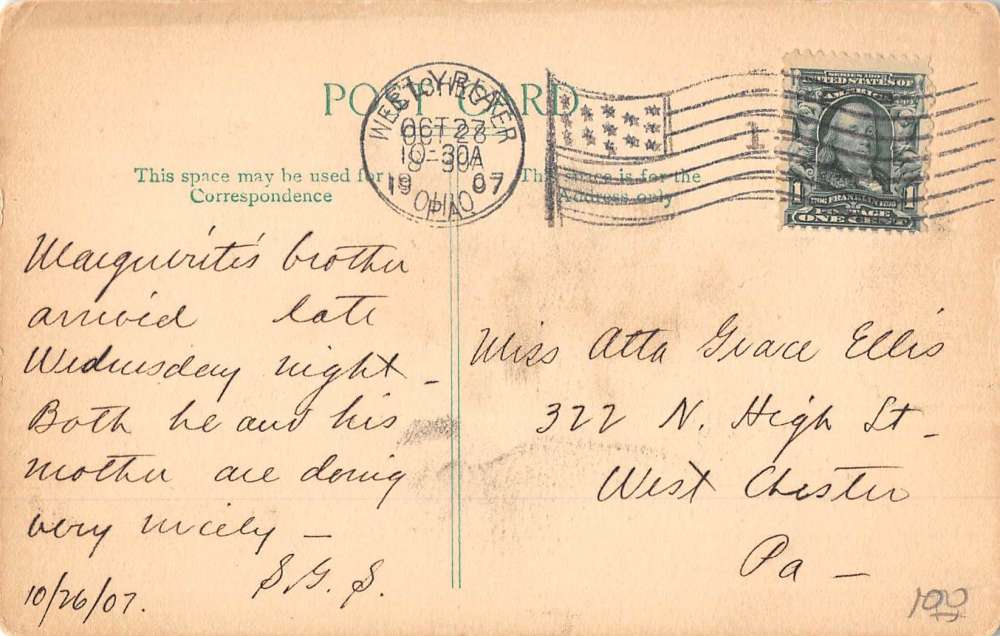 POST CARD
This space may be used for
Correspondence
This space is for the
Address only
OCT 28
1907
OHIO
PA
1
SERIES 1902
UNITED STATES OF
AMERICA
1 1
1706 FRANKLIN 1790
POSTAGE
ONE CENT
Marguerite's brother
arrived late
Wednesday night -
Both he and his
mother are doing
very nicely -
S.G.S.
10/26/07.
Miss Atta Grace Ellis
322 N. High St -
West Chester
Pa -
100